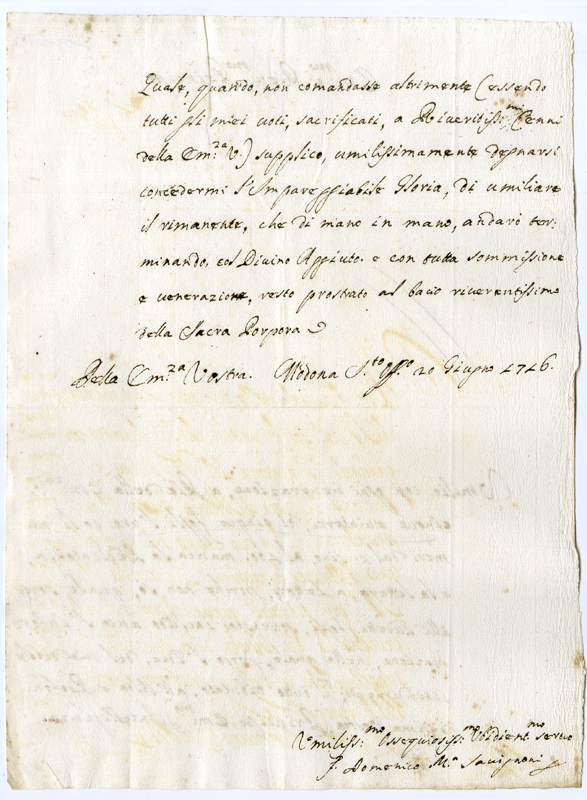 Quale, quando, non comandasse altrimente (essendo
tutti gli miei voti, sacrificati, a Riveritiss.mi Cenni
della Em.za V.) supplico, umilissimamente degnarsi
concedermi l'Impareggiabile Gloria, di umiliare
il rimanente, che di mano in mano, andarò ter:
minando, col Divino Aggiuto. e con tutta sommissione
e venerazione, resto prostrato al bacio riverentissimo
della Sacra Porpora
Della Em.za Vostra. Modona S.to Off.o 20 Giugno 1746.
Vmiliss.mo Ossequiosiss.mo Vbidient.mo servo
F. Domenico M.a Savignoni